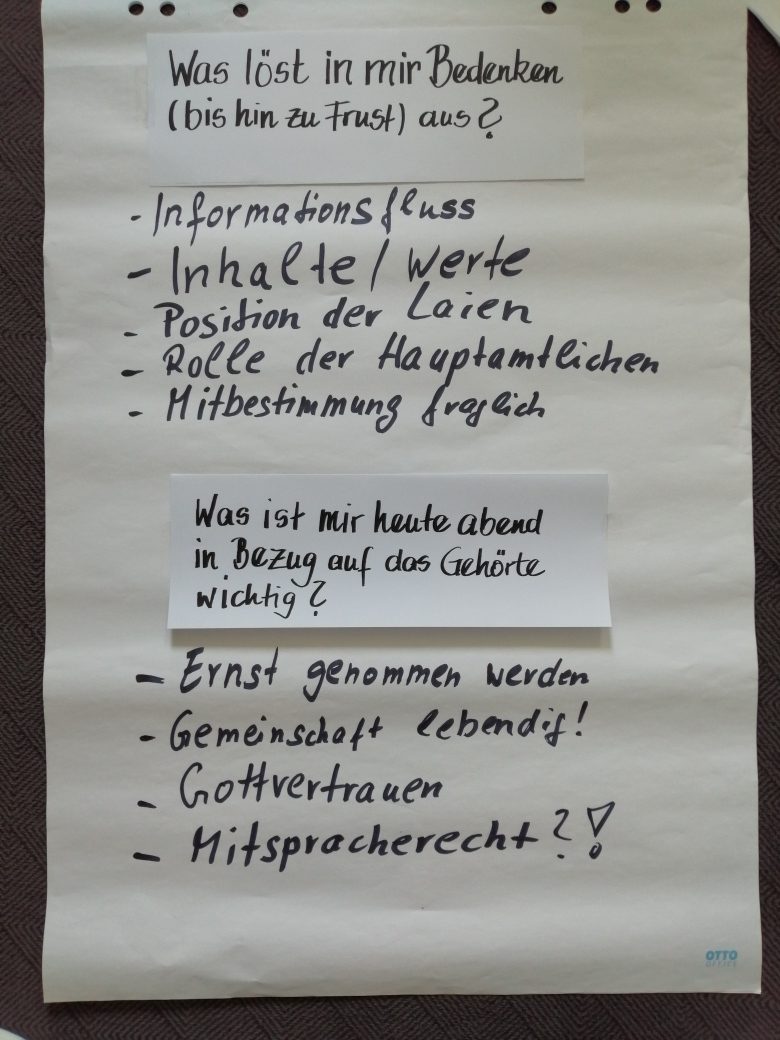 Was löst in mir Bedenken
(bis hin zu Frust) aus?
- Informationsfluss
- Inhalte / Werte
- Position der Laien
- Rolle der Hauptamtlichen
- Mitbestimmung fraglich
Was ist mir heute abend
in Bezug auf das Gehörte
wichtig?
- Ernst genommen werden
- Gemeinschaft lebendig!
- Gottvertrauen
- Mitspracherecht?!
OTTO
OFFICE